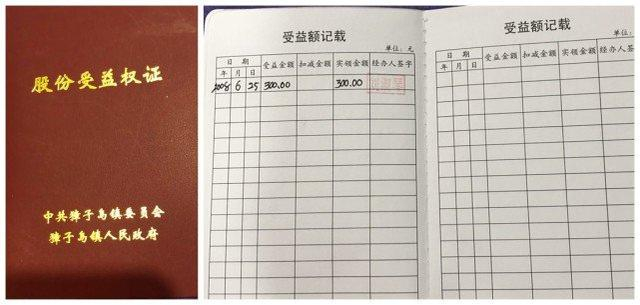 股份受益权证
中共獐子岛镇委员会
獐子岛镇人民政府
受益额记载
单位：元
日 期 受益金额 扣减金额 实领金额 经办人签字
年 月 日
2008 6 25 300.00 300.00
受益额记载
日 期 受益金额 扣减金额 实领金额 经办人签
年 月 日